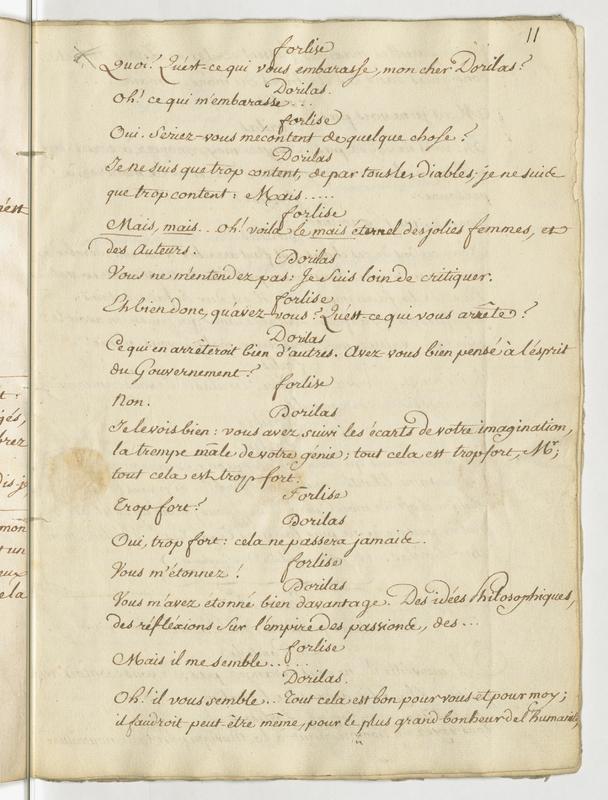 11
forlise
Quoi? Qu'est-ce qui vous embarasse, mon cher Dorilas?
Dorilas.
Oh! ce qui m'embarasse...
forlise
Oui. Seriez-vous mécontent de quelque chose?
Dorilas
Je ne suis que trop content, de par tous les diables, je ne suis
que trop content: Mais.....
forlise
Mais, mais.. oh! voila le mais éternel des jolies femmes, et
des Auteurs.
Dorilas
Vous ne m'entendez pas: Je suis loin de critiquer.
forlise
Eh bien donc, qu'avez-vous? Qu'est-ce qui vous arrête?
Dorilas
Ce qui en arrêteroit bien d'autres. Avez-vous bien pensé à l'esprit
du Gouvernement?
forlise
Non.
Dorilas
Je le vois bien: vous avez suivi les écarts de votre imagination,
la trempe mâle de votre génie; tout cela est trop fort, Mr;
tout cela est trop fort.
Forlise
Trop fort?
Dorilas
Oui, trop fort: cela ne passera jamais.
forlise
Vous m'étonnez!
Dorilas
Vous m'avez etonné bien davantage. Des idées Philosophiques,
des réfléxions sur l'empire des passions, des...
forlise
Mais il me semble.....
Dorilas.
Oh! il vous semble.. Tout cela est bon pour vous et pour moy;
il faudroit peut-être même, pour le plus grand bonheur de l'humanité,